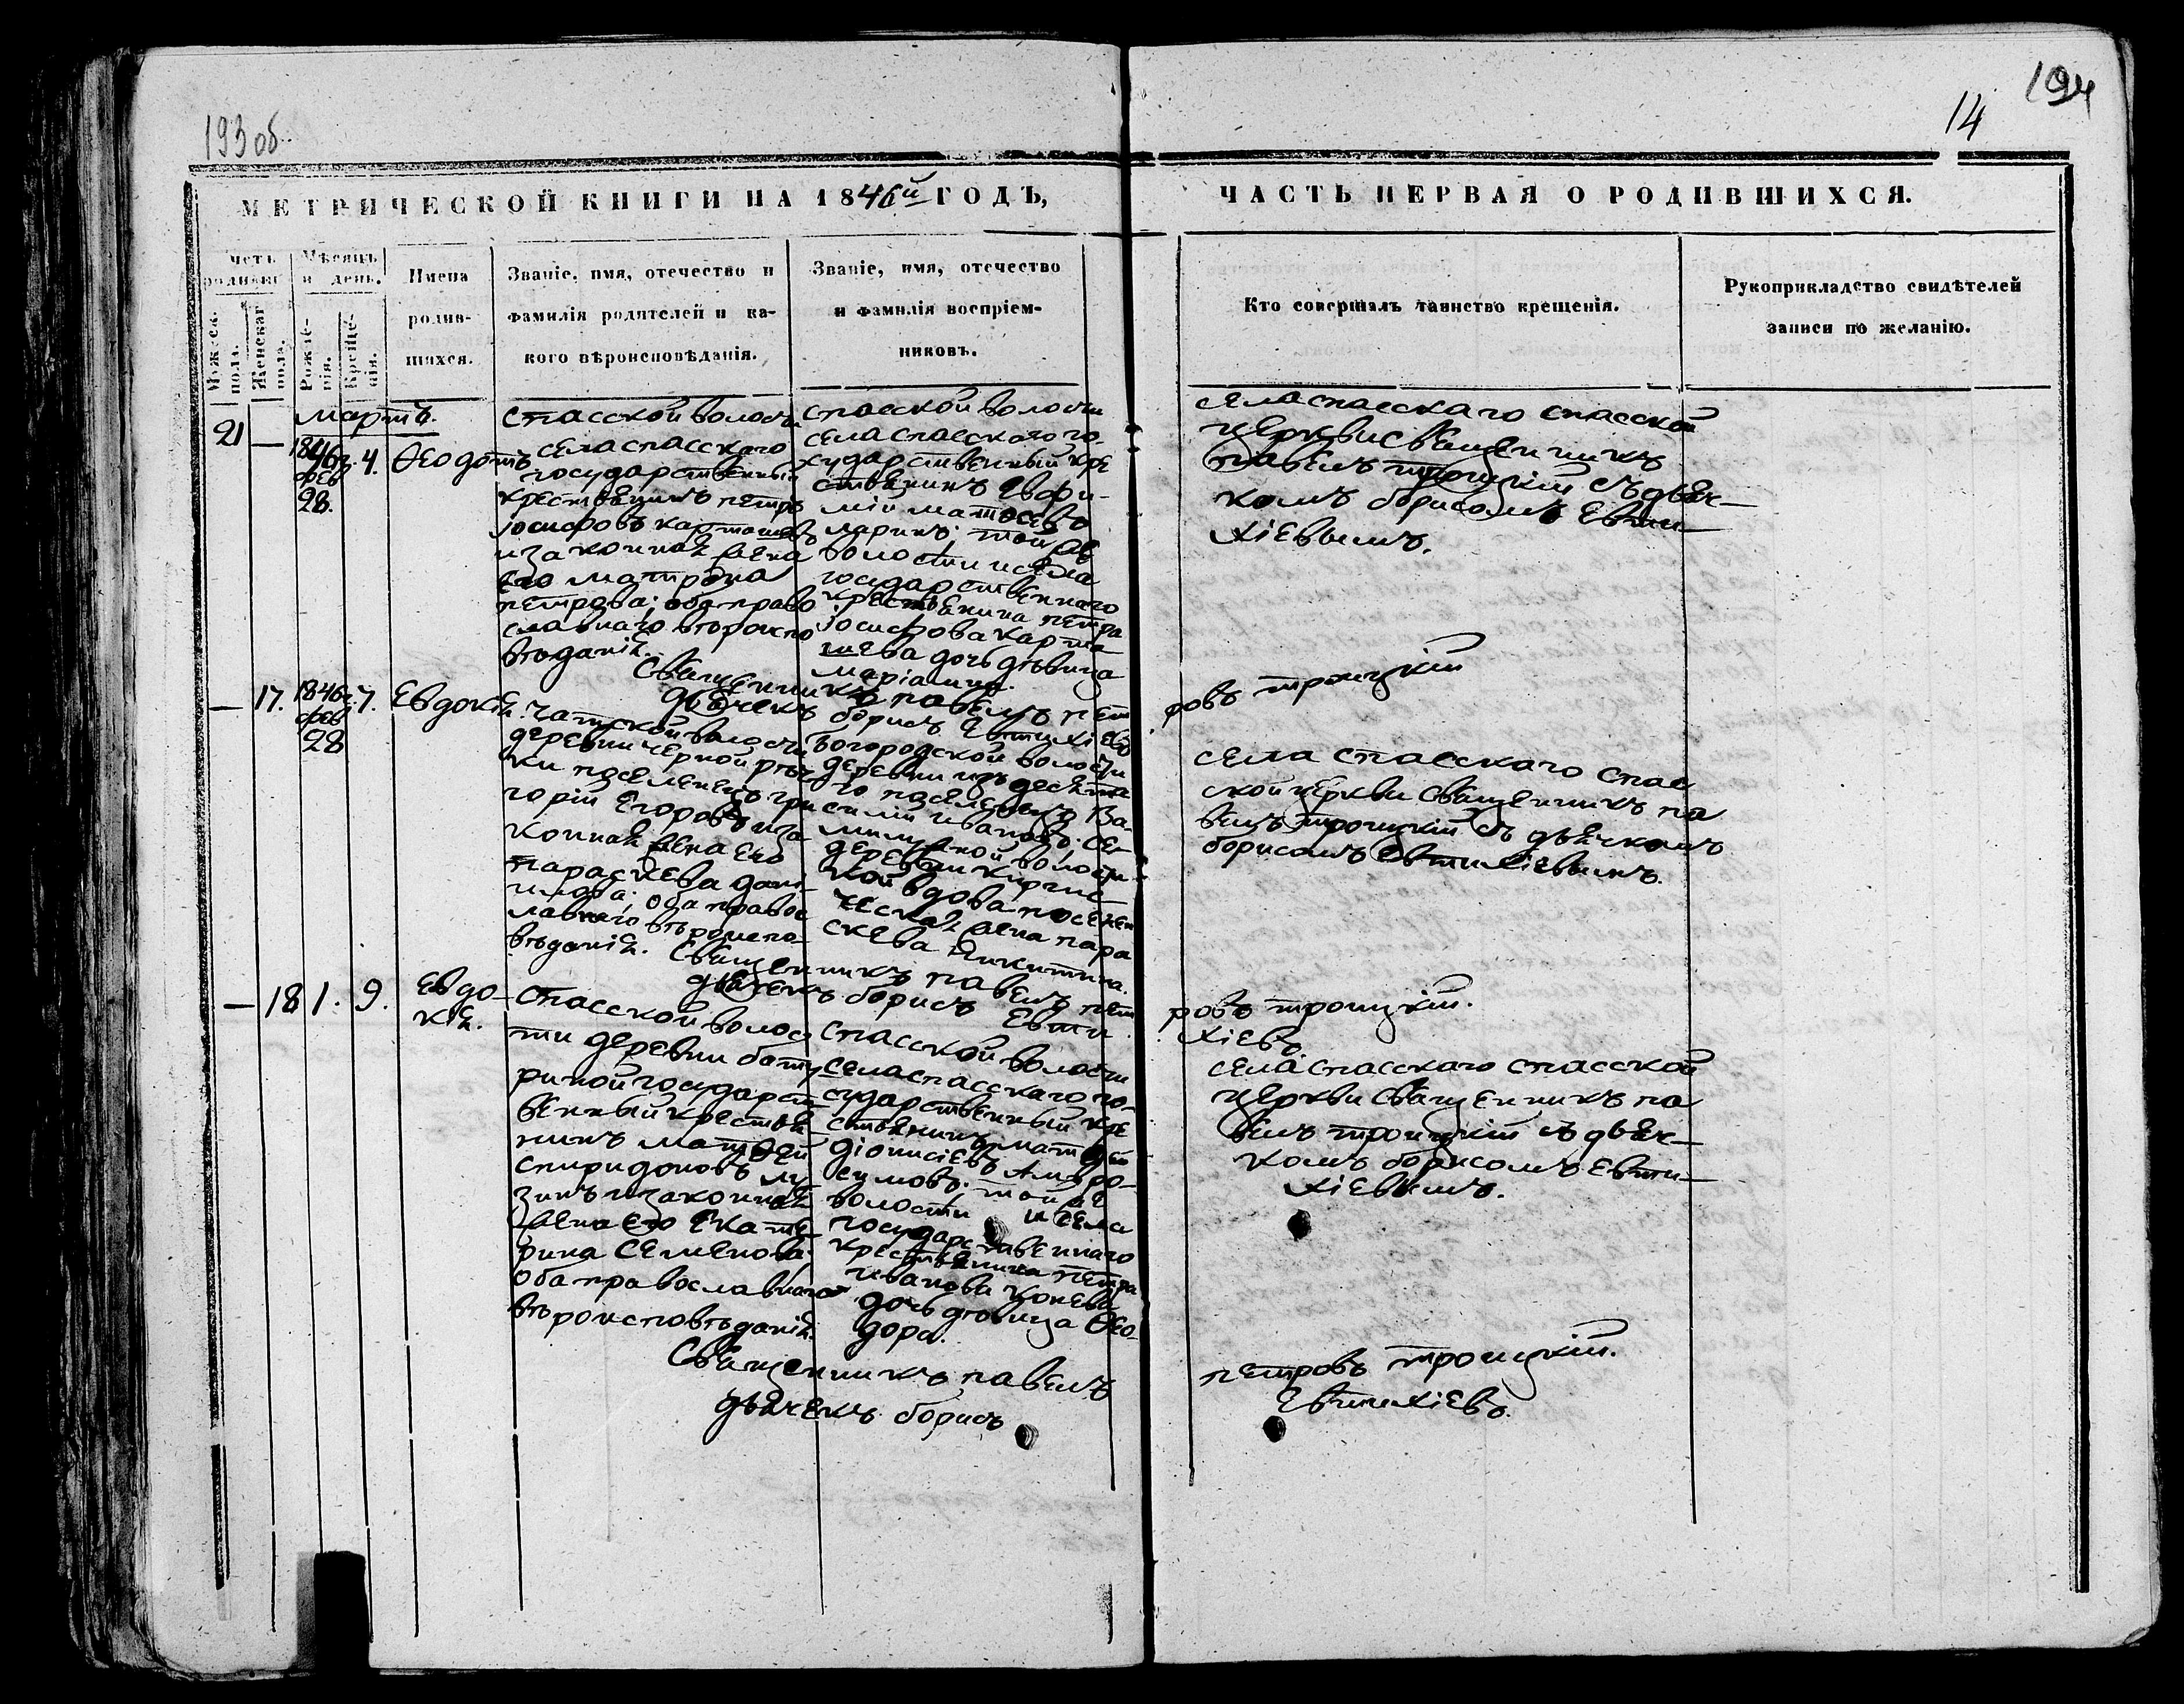 193 об.
194
14
МЕТРИЧЕСКОЙ КНИГИ НА 1846й ГОДЪ,
ЧАСТЬ ПЕРВАЯ О РОДИВШИХСЯ.
Мужеска пола.
Женскаг пола.
Мѣсяцъ и день.
Рожде-
нія.
Креще-
нія.
Имена
родив-
шихся.
Званіе, имя, отечество и
фамилія родителей и ка-
кого вѣроисповѣданія.
Званіе, имя, отечество
и фамилія воспріем-
никовъ.
Кто совершалъ таинство крещенія.
Рукоприкладство свидѣтелей
записи по желанію.
мартъ.
21
—
1846г.
фев
28.
4.
Ѳеодотъ
спасской волости
села спасскаго
государственный
крестьянинъ петръ
Іосифовъ карташевъ
и законная жена
его матрона
петрова; оба право
славнаго вѣроиспо
вѣданія.
спасской волости
села спасскаго го-
сударственный кре
стьянинъ Евфи-
мій матѳеевъ
ларинъ; той же
волости и села
государственнаго
крестьянина петра
Іосифова карта
шева дочь дѣвица
маріамна.
села спасскаго спасской
церкви священникъ
павелъ троицкій съ дьяч-
комъ борисомъ Евти-
хіевымъ.
Священникъ павелъ пет
ровъ троицкій
дьячекъ борисъ Евтихіевъ
—
17.
1846г.
фев
28
7.
Евдокія.
Чатской волости
деревни черной рѣч
ки поселенецъ гри
горій Егоровъ и за
конная жена его
параскева дани-
лова; оба правос
лавнаго вѣроиспо-
вѣданія.
Богородской волости
деревни изъ десята
го поселенецъ Ва-
силій ивановъ; се-
милужной волости
деревни киргис
кой вдова поселен
ческая жена пара
скева Никитина.
села спасскаго спас
ской церкви священникъ па
велъ троицкій съ дьячкомъ
борисомъ Евтихіевымъ.
Священникъ павелъ пет
ровъ троицкій.
дьячекъ борисъ Евти
хіевъ
—
18
1.
9.
Евдо-
кія.
Спасской волос
ти деревни бату
риной государст
венный крестья
нинъ матѳей
спиридоновъ лу
зинъ и законная
жена его Екате-
рина Семенова
оба православнаго
вѣроисповѣданія.
спасской волости
села спасскаго го-
сударственный кре
стьянинъ матѳей
діонисіевъ Амвро-
симовъ. той же
волости и села
государственнаго
крестьянина петра
иванова конева
дочь дѣвица Ѳео-
дора.
села спасскаго спасской
церкви священникъ па
велъ троицкій съ дьяч-
комъ борисомъ Евти-
хіевымъ.
Священникъ павелъ
петровъ троицкій.
дьячекъ борисъ
Евтихіевъ.